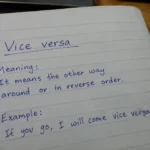 Vice versa
Meaning:
It means the other way
around or in reverse order.
Example:
If you go, I will come vice versa